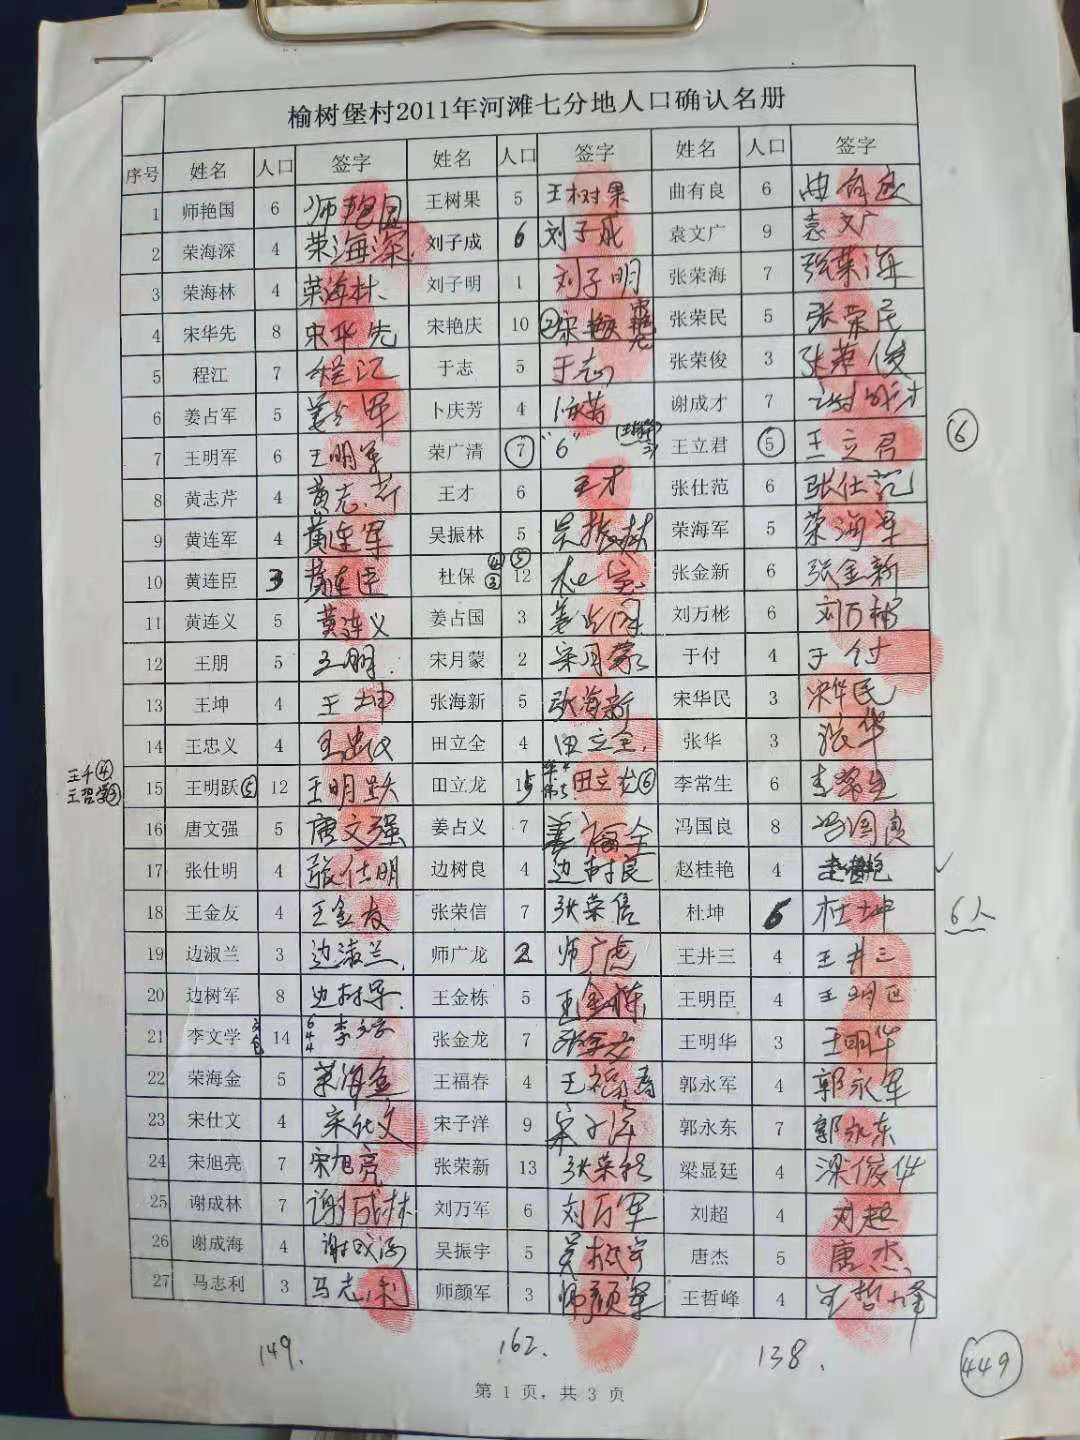 榆树堡村2011年河滩七分地人口确认名册
序号 姓名 人口 签字 姓名 人口 签字 姓名 人口 签字
1 师艳国 6 师艳国 王树果 5 王树果 曲有良 6 曲有良
2 荣海深 4 荣海深 刘子成 6 刘子成 袁文广 9 袁文广
3 荣海林 4 荣海林 刘子明 1 刘子明 张荣海 7 张荣海
4 宋华先 8 宋华先 宋艳庆 10 ②宋艳庆 张荣民 5 张荣民
5 程江 7 程江 于志 5 于志 张荣俊 3 张荣俊
6 姜占军 5 姜占军 卜庆芳 4 谢成才 7 谢成才
7 王明军 6 王明军 荣广清 ⑦ "6" 王立君 ⑤ 王立君 ⑥
8 黄志芹 4 黄志芹 王才 6 王才 张仕范 6 张仕范
9 黄连军 4 黄连军 吴振林 5 吴振林 荣海军 5 荣海军
10 黄连臣 3 黄连臣 杜保 ④ ③ ⑤ 12 杜宝 张金新 6 张金新
11 黄连义 5 黄连义 姜占国 3 姜占国 刘万彬 6 刘万彬
12 王朋 5 王朋 宋月蒙 2 宋月蒙 于付 4 于付
13 王坤 4 王坤 张海新 5 张海新 宋华民 3 宋华民
14 王忠义 4 王忠义 田立全 4 田立全 张华 3 张华
王千④
王哲学③
15 王明跃⑤ 12 王明跃 田立龙 15 田立龙⑥ 李常生 6 李常生
16 唐文强 5 唐文强 姜占义 7 姜福全 冯国良 8 冯国良
17 张仕明 4 张仕明 边树良 4 边树良 赵桂艳 4 赵桂艳 ✓
18 王金友 4 王金友 张荣信 7 张荣信 杜坤 6 杜坤 6人
19 边淑兰 3 边淑兰 师广龙 2 师广虎 王井三 4 王井三
20 边树军 8 边树军 王金栋 5 王金栋 王明臣 4 王明臣
21 李文学 14 6 4 4 李文学 张金龙 7 张金龙 王明华 3 王明华
22 荣海金 5 荣海金 王福春 4 王福春 郭永军 4 郭永军
23 宋仕文 4 宋仕文 宋子洋 9 宋子洋 郭永东 7 郭永东
24 宋旭亮 7 宋旭亮 张荣新 13 张荣新 梁显廷 4 梁俊华
25 谢成林 7 谢成林 刘万军 6 刘万军 刘超 4 刘超
26 谢成海 4 谢成海 吴振宇 5 吴振宇 唐杰 5 唐杰
27 马志利 3 马志利 师颜军 3 师颜军 王哲峰 4 王哲峰
149. 162. 138. 449
第 1 页，共 3 页